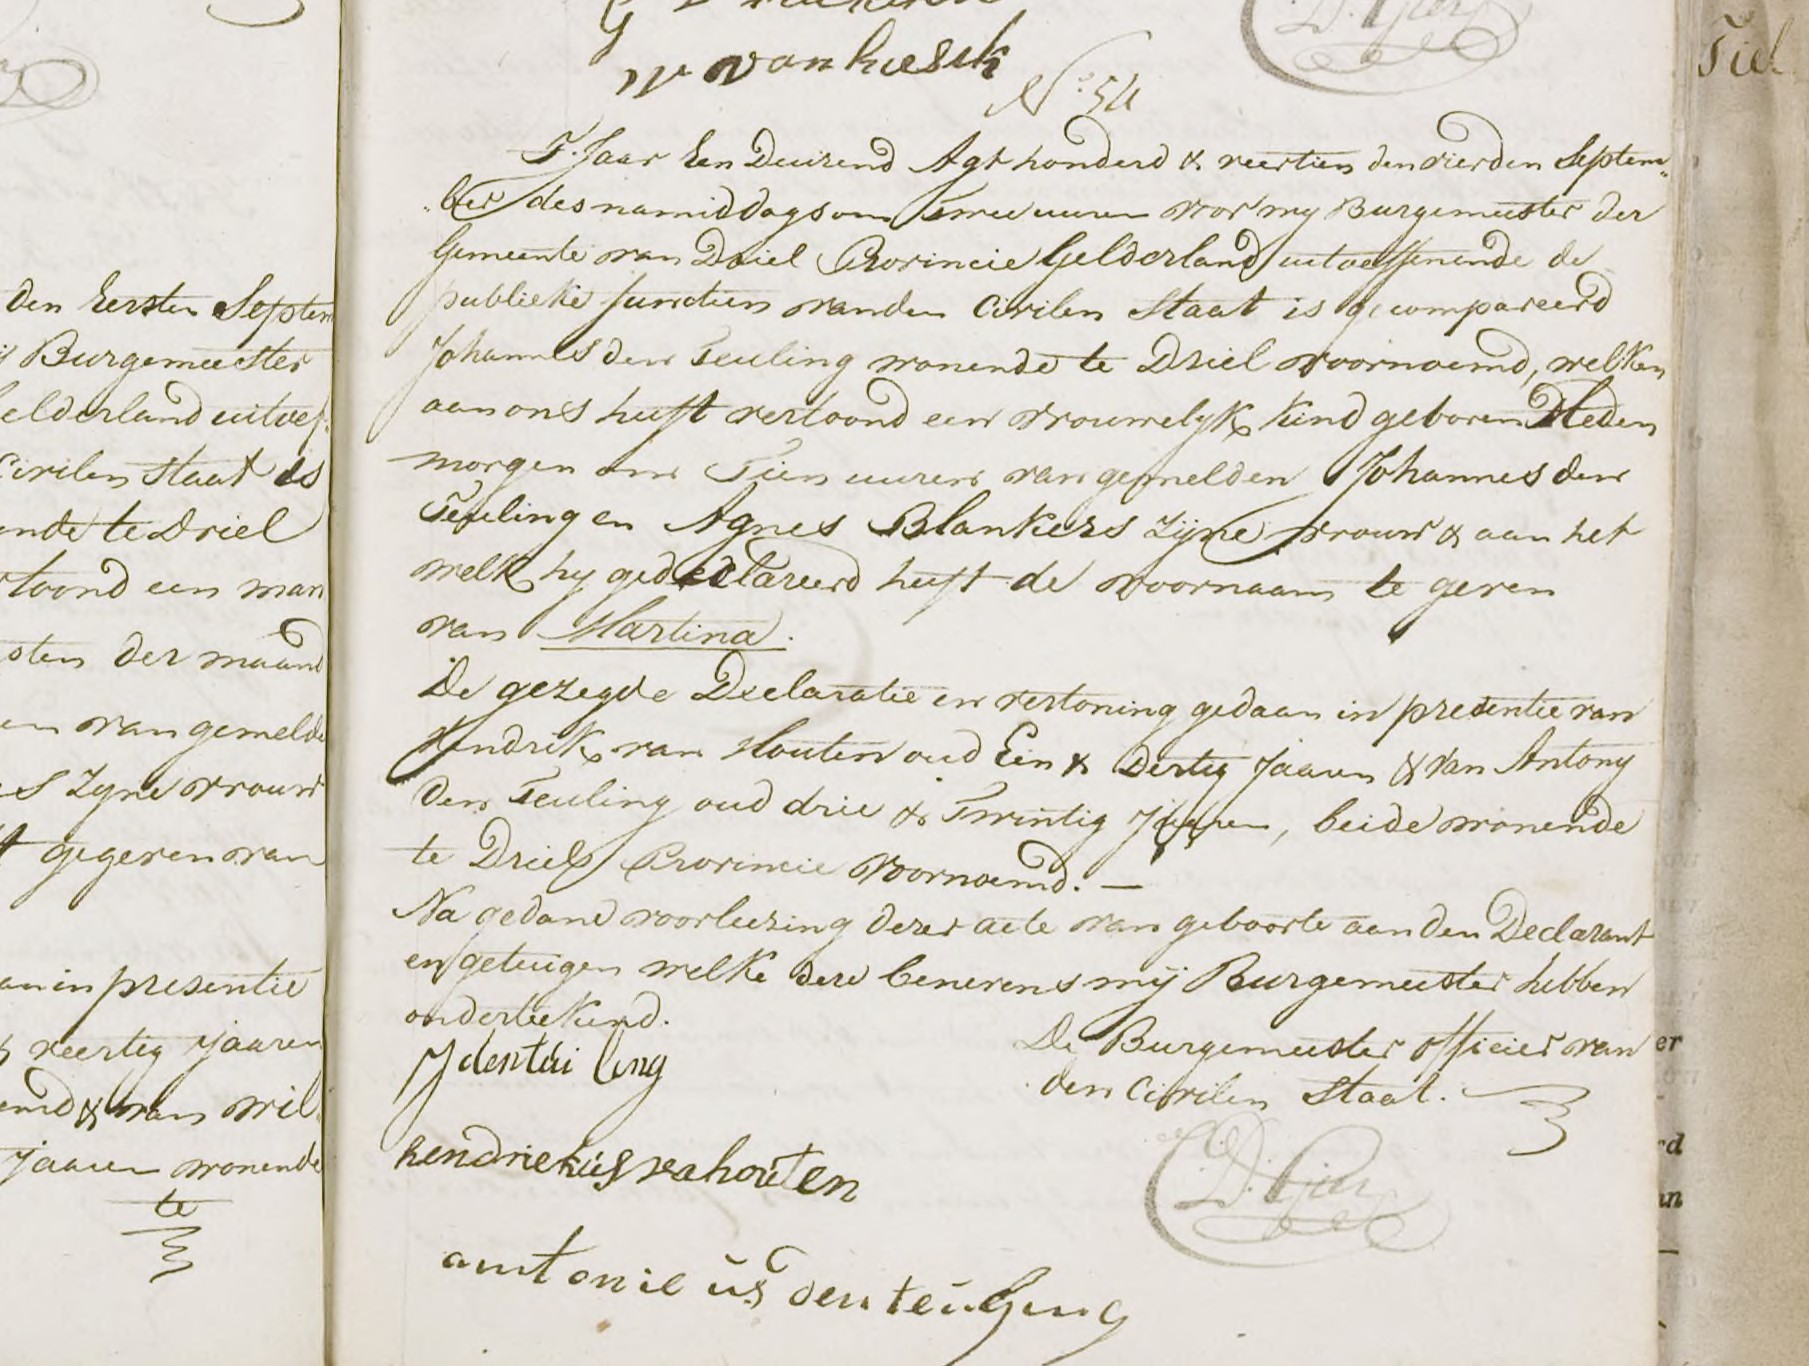 W van hiesik
No. 54
T Jaar Een Duizend Agt honderd & veertien den vierden Septem„
„ber des namiddags om Twee uuren voor my Burgemeester der
Gemeente van Driel Provincie Gelderland uitoeffenende de
publieke functien van den Civilen Staat is gecompareerd
Johannes den Teuling wonende te Driel voornoemd, welken
aan ons heeft vertoond een vrouwelyk kind geboren Heden
morgen om Tien uuren van gemelden Johannes den
Teuling en Agnes Blankers Zijne vrouw & aan het
welk hy gedeclareerd heeft de voornaam te geven
van Martina.
De gezegde Declaratie en vertoning gedaan in presentie van
Hendrik van Houten oud Een & Dertig Jaaren & van Antony
den Teuling oud drie & Twintig Jaaren, beide wonende
te Driel Provincie voornoemd. —
Na gedane voorleezing dezer acte van geboorte aan den Declarant
en getuigen welke deze benevens mij Burgemeester hebben
onderteekend.
De Burgemeester officier van
den Civilen Staat.
J den teuling
hendriekus va houten
antonie us den teuling
den Eersten Septem
Burgemeester
elderland uitoef
Civilen Staat is
ende te Driel
toond een man
sten der maand
en van gemelde
s Zyne vrouw
gegeven van
an in presentie
veertig Jaaren
emd & van Wil
Jaaren wonende
te
Tiel
er
rd
an